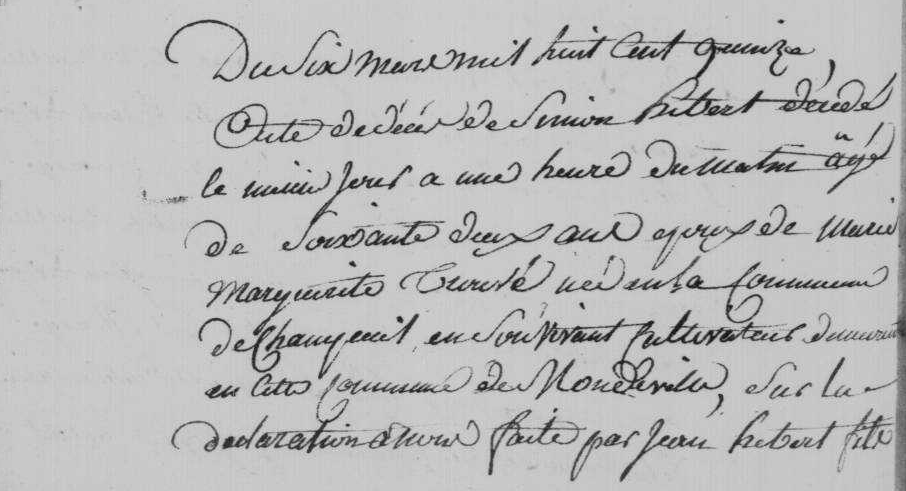 Du six mars mil huit cent quinze,
Acte de décès de Simon hebert décédé
le même jour a une heure du matin âgé
de soixante deux ans epoux de Marie
Marguerite né en la Commune
de Champcueil en son vivant Cultivateur demeurant
en cette Commune de Mondeville, sur la
declaration a nous faite par Jean hebert fils